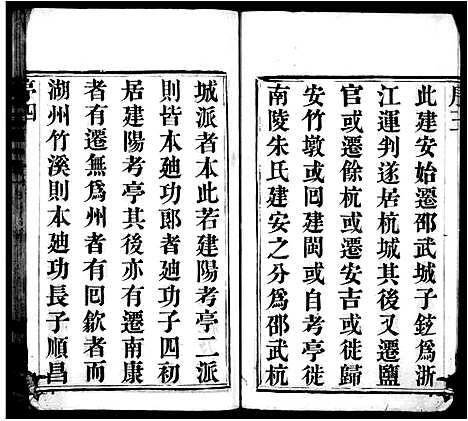 此建安始遷邵武城子鉉為浙
江運判遂居杭城其後又遷鹽
官或遷餘杭或遷安吉或徙歸
安竹墩或回建閩或自考亭徙
南陵朱氏建安之分為邵武杭
城派者本此若建陽考亭二派
則皆本廸功郎者廸功子四初
居建陽考亭其後亦有遷南康
者有遷無為州者有回歙者而
湖州竹溪則本廸功長子順昌